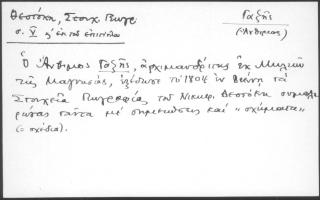 Θεοτόκη, Στοιχ. Γεωγρ.
Γαζῆς
(Ἄνθιμος)
σ. V
Ὁ Ἄνθιμος Γαζῆς, ἀρχιμανδρίτης ἐκ Μηλιῶν
τῆς Μαγνησίας, ἐξέδωσε τὸ 1804 ἐν Βιέννῃ τὰ
Στοιχεῖα Γεωγραφίας τοῦ Νικηφ. Θεοτόκη συμπλη
ρώσας ταῦτα μὲ σημειώσεις καὶ "σχήματα"
(= σχέδια).